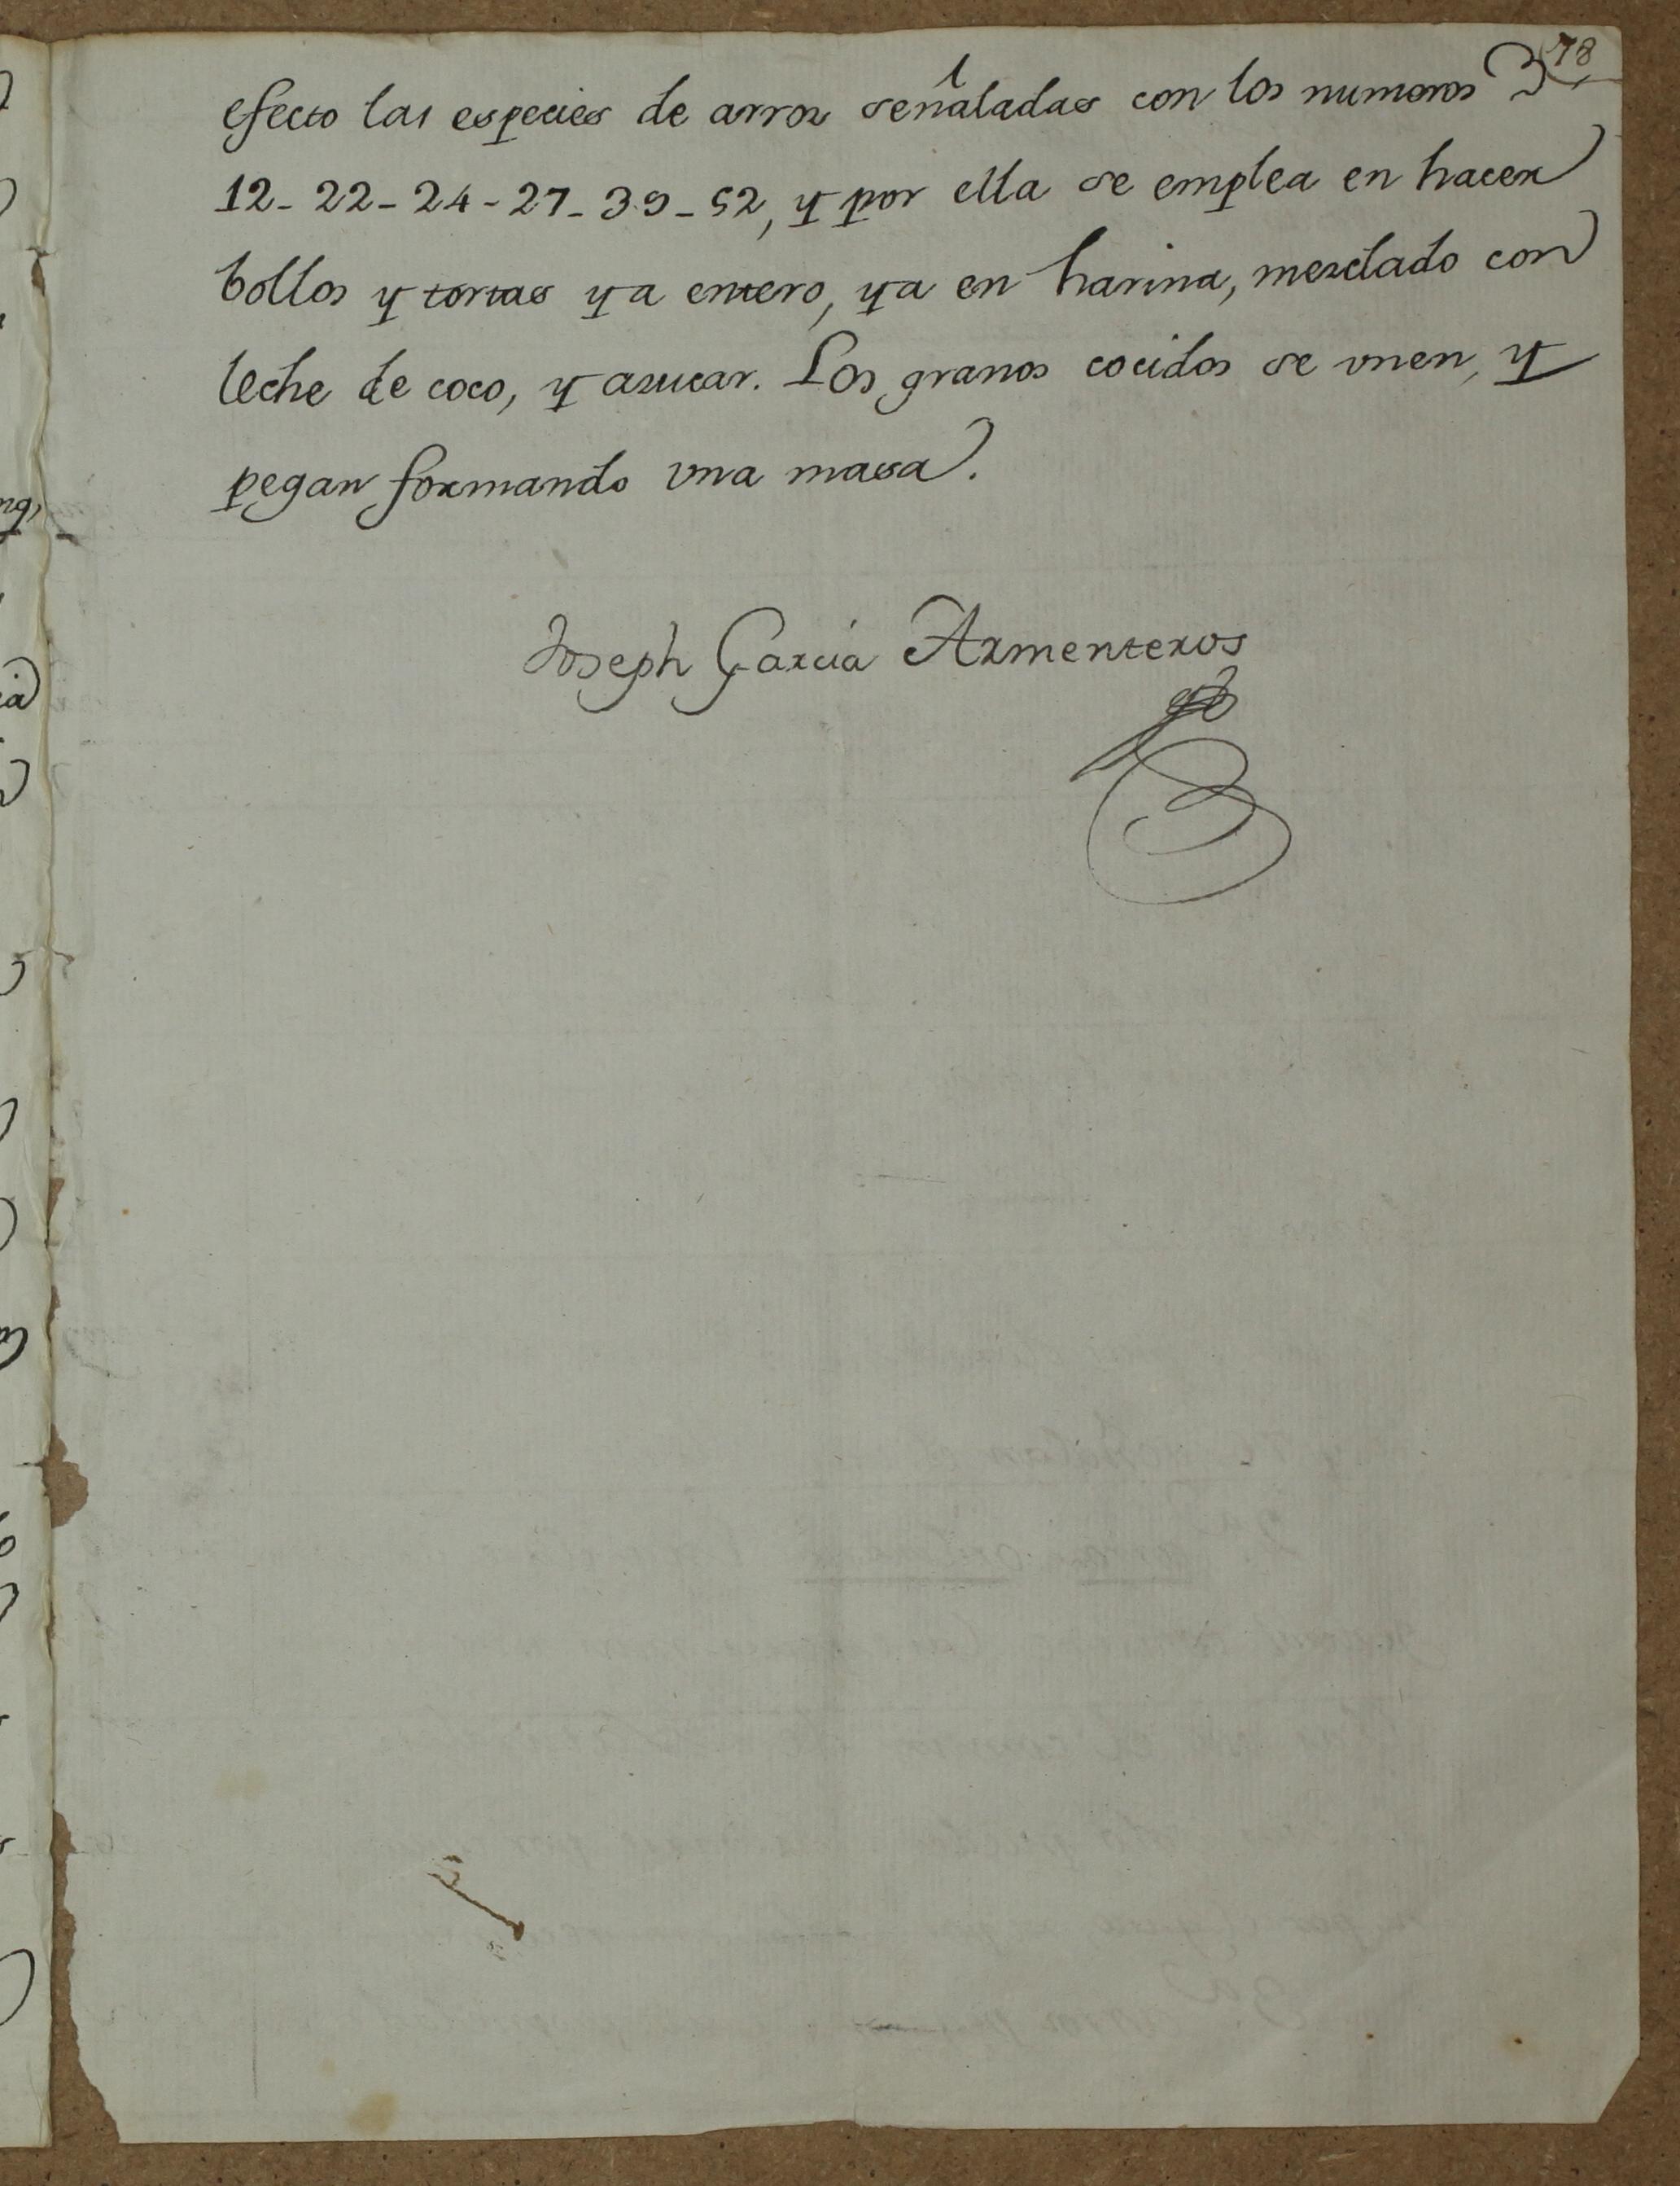 78
efecto las especies de arroz señaladas con los numeros 3
12- 22- 24- 27- 39- 52, y por ella se emplea en hacer
bollos y tortas ya entero, ya en harina, mezclado con
leche de coco, y azucar. Los granos cocidos se vnen, y
pegan formando vna masa.
Joseph García Armenteros